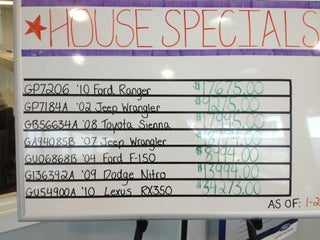 HOUSE SPECIALS
GP7206 '10 Ford Ranger $17675.00
GP7184A '02 Jeep Wrangler $9275.00
GB56634A '08 Toyota Sienna $17995.00
GA9408SB '07 Jeep Wrangler
GU06868B '04 Ford F-150 $8994.00
G136342A '09 Dodge Nitro $13994.00
GU54900A '10 Lexus RX350 $34273.00
AS OF: 1-2